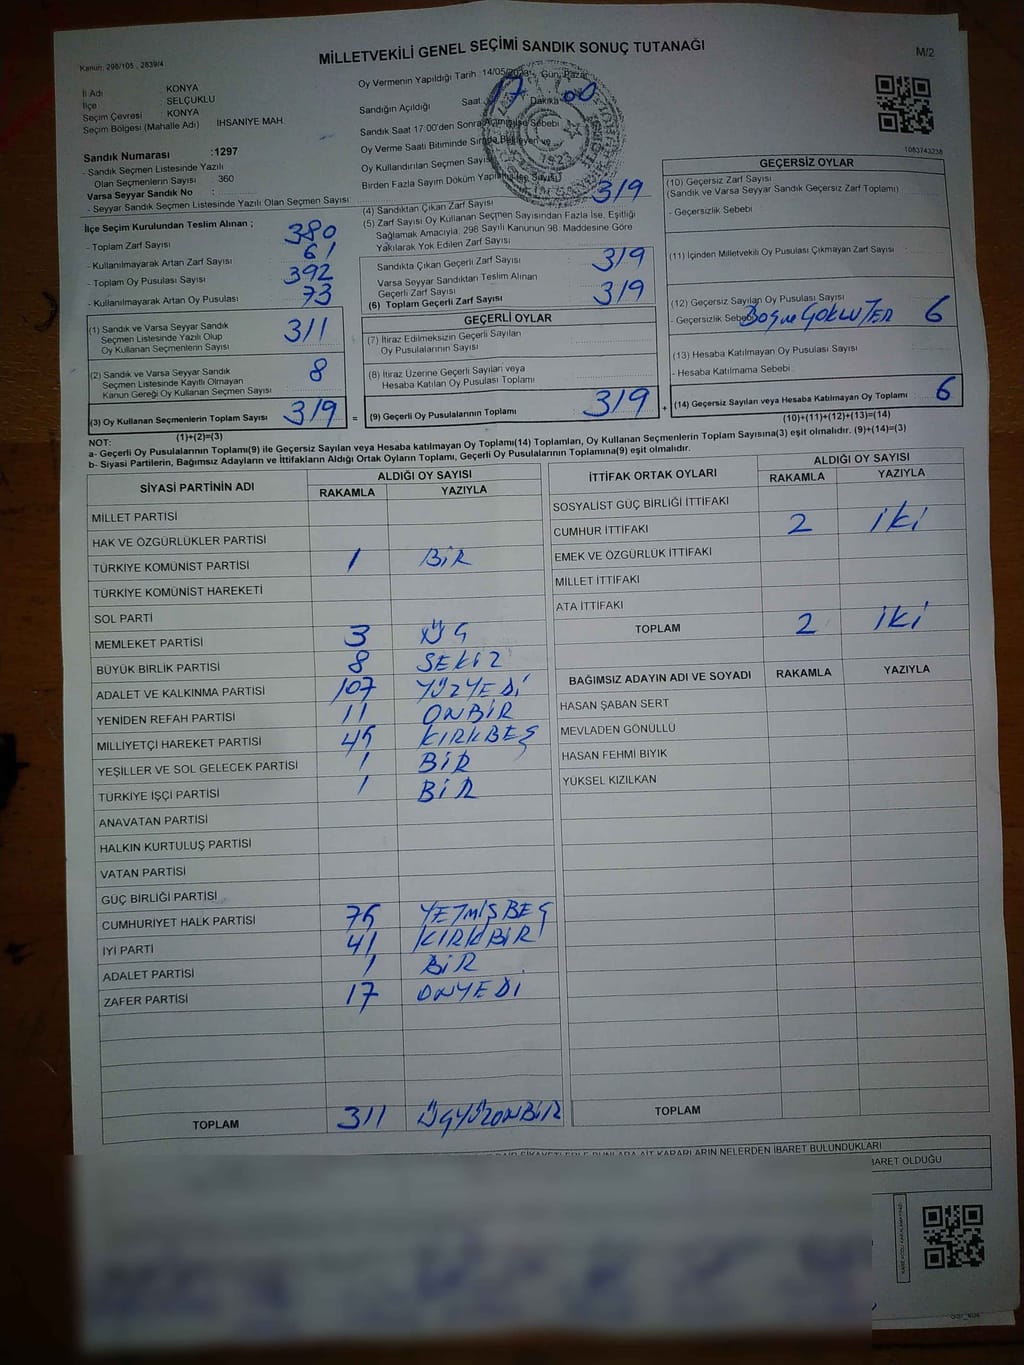 Kanun: 298/105 , 2839/4
MİLLETVEKİLİ GENEL SEÇİMİ SANDIK SONUÇ TUTANAĞI
M/2
İl Adı : KONYA
İlçe : SELÇUKLU
Seçim Çevresi : KONYA
Seçim Bölgesi (Mahalle Adı) : İHSANİYE MAH
Sandık Numarası : 1297
- Sandık Seçmen Listesinde Yazılı
Olan Seçmenlerin Sayısı : 360
Varsa Seyyar Sandık No :
- Seyyar Sandık Seçmen Listesinde Yazılı Olan Seçmen Sayısı
Oy Vermenin Yapıldığı Tarih : 14/05/2023 Gün: Pazar
Sandığın Açıldığı Saat 17 Dakika 00
Sandık Saat 17:00'den Sonra Açılmışsa Sebebi
Oy Verme Saati Bitiminde Sırada Bekleyen ve
Oy Kullandırılan Seçmen Sayısı
Birden Fazla Sayım Döküm Yapılmış İse Sayısı
1923
1083743238
İlçe Seçim Kurulundan Teslim Alınan ;
- Toplam Zarf Sayısı : 380
- Kullanılmayarak Artan Zarf Sayısı : 61
- Toplam Oy Pusulası Sayısı : 392
- Kullanılmayarak Artan Oy Pusulası : 73
(1) Sandık ve Varsa Seyyar Sandık
Seçmen Listesinde Yazılı Olup
Oy Kullanan Seçmenlerin Sayısı 311
(2) Sandık ve Varsa Seyyar Sandık
Seçmen Listesinde Kayıtlı Olmayan
Kanun Gereği Oy Kullanan Seçmen Sayısı 8
(3) Oy Kullanan Seçmenlerin Toplam Sayısı 319 =
(1)+(2)=(3)
(4) Sandıktan Çıkan Zarf Sayısı 319
(5) Zarf Sayısı Oy Kullanan Seçmen Sayısından Fazla İse, Eşitliği
Sağlamak Amacıyla; 298 Sayılı Kanunun 98. Maddesine Göre
Yakılarak Yok Edilen Zarf Sayısı
Sandıkta Çıkan Geçerli Zarf Sayısı 319
Varsa Seyyar Sandıktan Teslim Alınan
Geçerli Zarf Sayısı
(6) Toplam Geçerli Zarf Sayısı 319
GEÇERLİ OYLAR
(7) İtiraz Edilmeksizin Geçerli Sayılan
Oy Pusulalarının Sayısı
(8) İtiraz Üzerine Geçerli Sayılan veya
Hesaba Katılan Oy Pusulası Toplamı
(9) Geçerli Oy Pusulalarının Toplamı 319 +
GEÇERSİZ OYLAR
(10) Geçersiz Zarf Sayısı
(Sandık ve Varsa Seyyar Sandık Geçersiz Zarf Toplamı)
- Geçersizlik Sebebi
(11) İçinden Milletvekili Oy Pusulası Çıkmayan Zarf Sayısı
(12) Geçersiz Sayılan Oy Pusulası Sayısı 6
- Geçersizlik Sebebi
(13) Hesaba Katılmayan Oy Pusulası Sayısı
- Hesaba Katılmama Sebebi
(14) Geçersiz Sayılan veya Hesaba Katılmayan Oy Toplamı 6
(10)+(11)+(12)+(13)=(14)
NOT:
a- Geçerli Oy Pusulalarının Toplamı(9) ile Geçersiz Sayılan veya Hesaba Katılmayan Oy Toplamı(14) Toplamları, Oy Kullanan Seçmenlerin Toplam Sayısına(3) eşit olmalıdır. (9)+(14)=(3)
b- Siyasi Partilerin, Bağımsız Adayların ve İttifakların Aldığı Ortak Oyların Toplamı, Geçerli Oy Pusulalarının Toplamına(9) eşit olmalıdır.
SİYASİ PARTİNİN ADI ALDIĞI OY SAYISI
RAKAMLA YAZIYLA
MİLLET PARTİSİ
HAK VE ÖZGÜRLÜKLER PARTİSİ
TÜRKİYE KOMÜNİST PARTİSİ 1 BİR
TÜRKİYE KOMÜNİST HAREKETİ
SOL PARTİ
MEMLEKET PARTİSİ 3 ÜÇ
BÜYÜK BİRLİK PARTİSİ 8 SEKİZ
ADALET VE KALKINMA PARTİSİ 107 YÜZYEDİ
YENİDEN REFAH PARTİSİ 11 ONBİR
MİLLİYETÇİ HAREKET PARTİSİ 45 KIRKBEŞ
YEŞİLLER VE SOL GELECEK PARTİSİ 1 BİR
TÜRKİYE İŞÇİ PARTİSİ 1 BİR
ANAVATAN PARTİSİ
HALKIN KURTULUŞ PARTİSİ
VATAN PARTİSİ
GÜÇ BİRLİĞİ PARTİSİ
CUMHURİYET HALK PARTİSİ 75 YETMİŞBEŞ
İYİ PARTİ 41 KIRKBİR
ADALET PARTİSİ 1 BİR
ZAFER PARTİSİ 17 ONYEDİ
TOPLAM 311 ÜÇYÜZONBİR
İTTİFAK ORTAK OYLARI ALDIĞI OY SAYISI
RAKAMLA YAZIYLA
SOSYALİST GÜÇ BİRLİĞİ İTTİFAKI
CUMHUR İTTİFAKI 2 İKİ
EMEK VE ÖZGÜRLÜK İTTİFAKI
MİLLET İTTİFAKI
ATA İTTİFAKI
TOPLAM 2 İKİ
BAĞIMSIZ ADAYIN ADI VE SOYADI RAKAMLA YAZIYLA
HASAN ŞABAN SERT
MEVLADEN GÖNÜLLÜ
HASAN FEHMİ BIYIK
YÜKSEL KIZILKAN
TOPLAM
KARARLARIN NELERDEN İBARET BULUNDUKLARI
BARET OLDUĞU